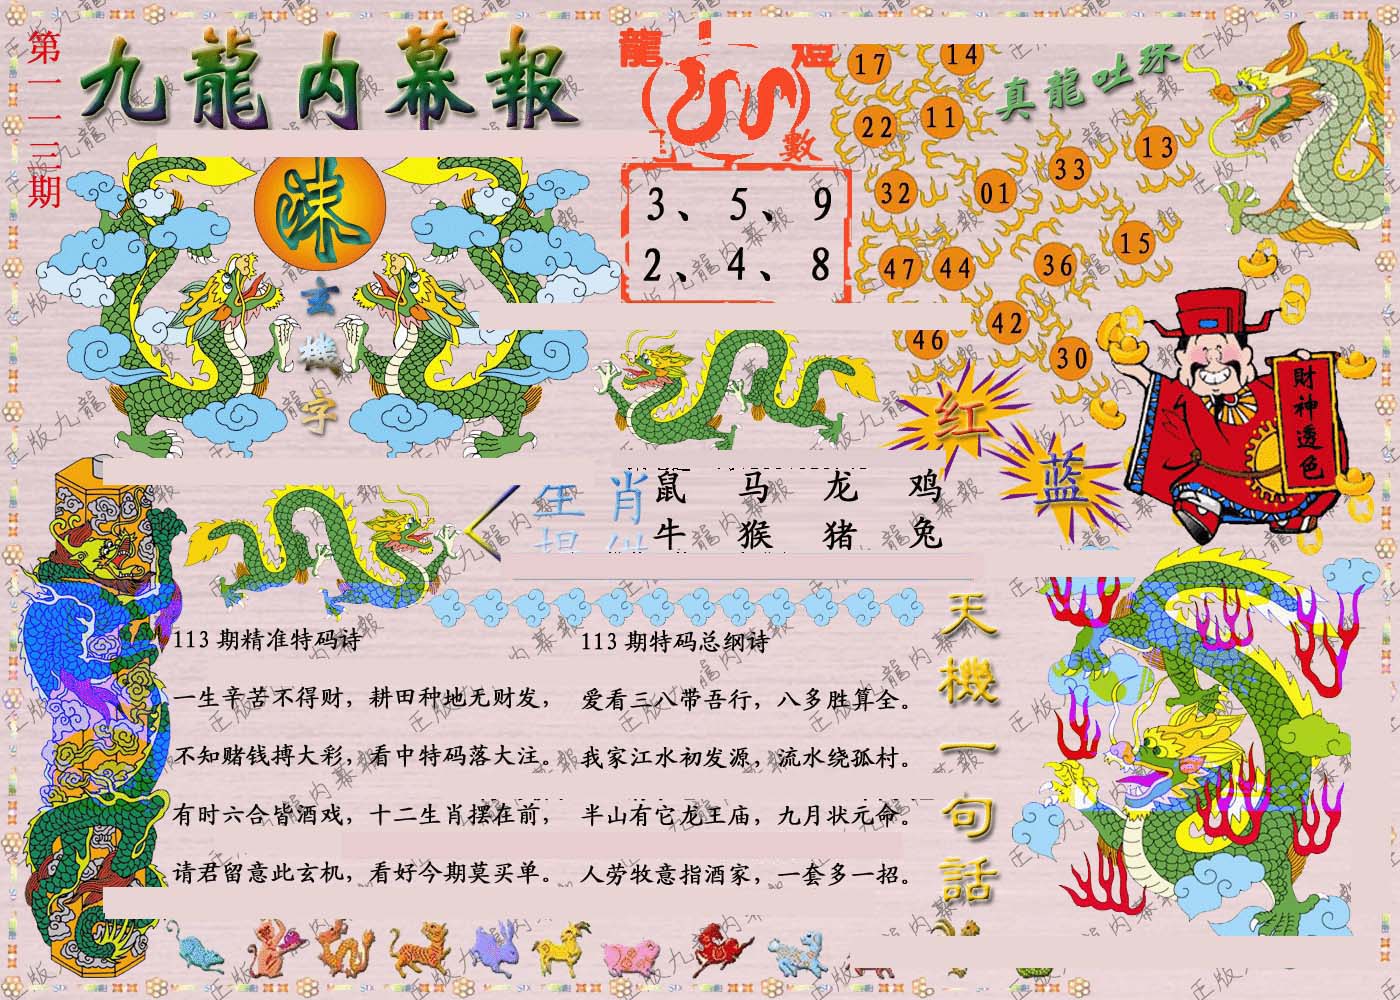 第一一三期
九龍内幕報
玄機字
3、5、9
2、4、8
真龍吐珠
17
14
22
11
13
33
32
01
15
47
44
36
42
46
30
财神透色
红
蓝
生肖
鼠 马 龙 鸡
牛 猴 猪 兔
天機一句話
113 期精准特码诗
一生辛苦不得财，耕田种地无财发，
不知赌钱搏大彩，看中特码落大注。
有时六合皆酒戏，十二生肖摆在前，
请君留意此玄机，看好今期莫买单。
113 期特码总纲诗
爱看三八带吾行，八多胜算全。
我家江水初发源，流水绕孤村。
半山有它龙王庙，九月状元命。
人劳牧意指酒家，一套多一招。
正版九龍内幕報